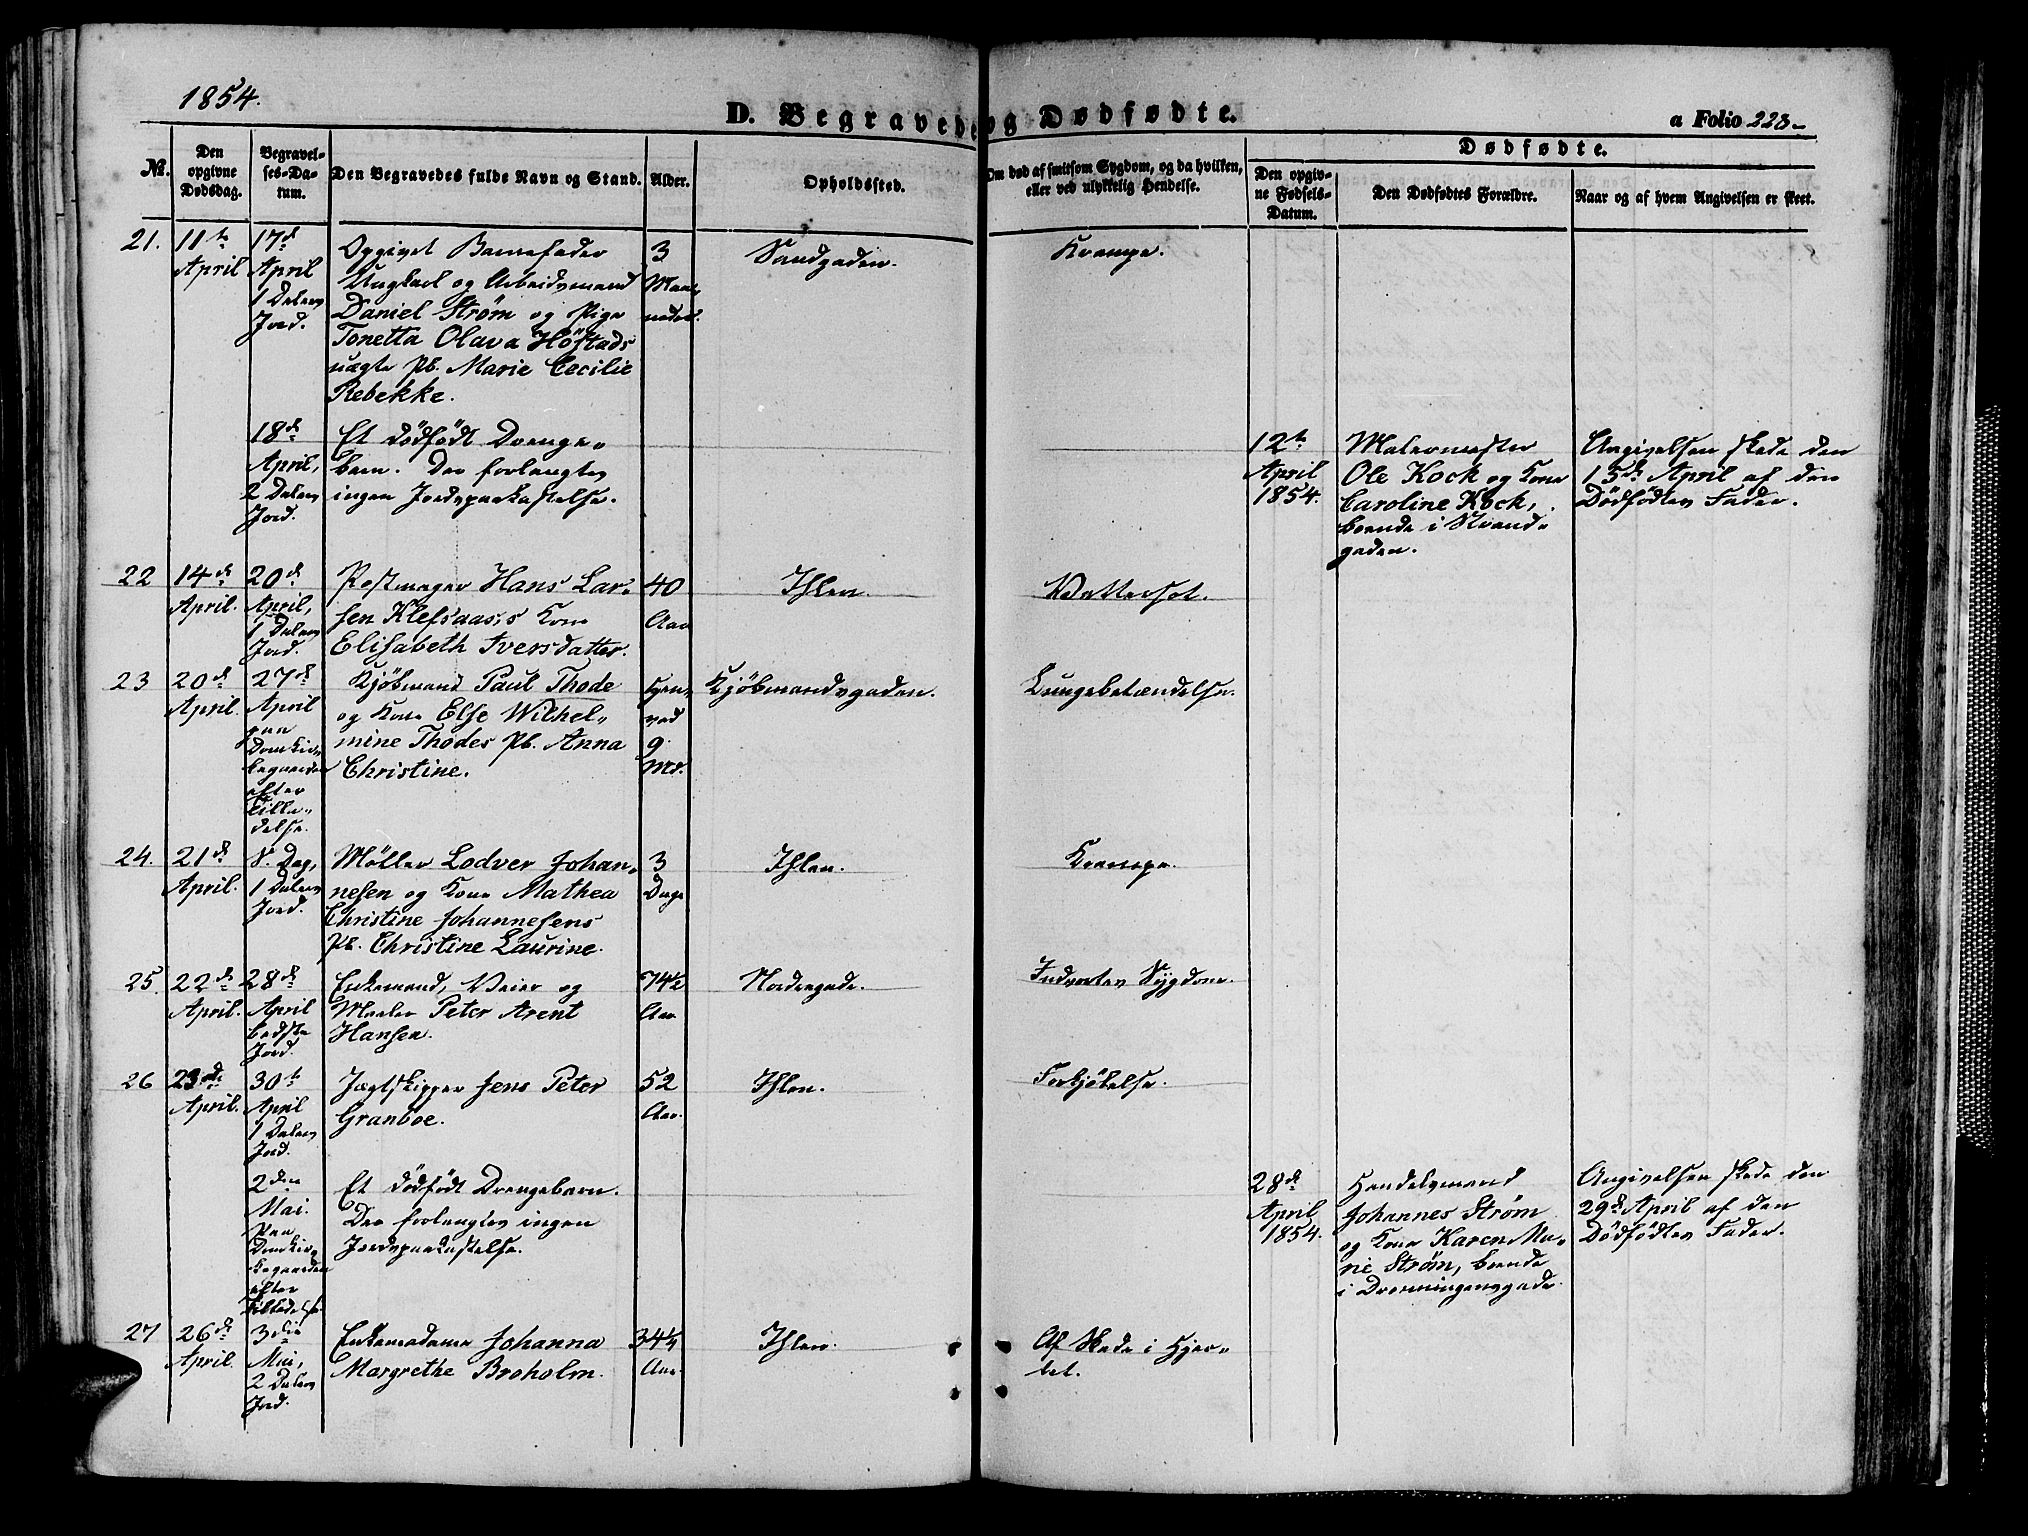 1854.
D. Begravede og Dødfødte.
a Folio 228
No.
Den opgivne Dødsdag.
Begravelses-Datum.
Den Begravedes fulde Navn og Stand.
Alder.
Opholdssted.
Om død af smitsom Sygdom, og da hvilken, eller ved ulykkelig Hendelse.
Dødfødte.
Den opgivne Fødsels-Datum.
Den Dødfødtes Forældre.
Naar og af hvem Angivelsen er skeet.
21. 11te April
17de April 1 Dalers Jord.
Opgivet Barnefader
Ungkarl og Arbeidsmand
Daniel Strøm og Pige
Tonetta Olava Höstads
uægte Pb. Marie Cecilie
Rebekke.
3 Maaneder.
Sandgaden.
Krampe.
18de April, 2 Dalers Jord.
Et dödfödt Drenge-
barn. Der forlangtes
ingen Jordspaakastelse.
12te April 1854.
Malermester
Ole Kock og Kone
Caroline Kock,
boende i Strand-
gaden.
Angivelsen skede den
15de April af den
Dödfödtes Fader.
22 14de April.
20de April, 1 Dalers Jord.
Hans Lar-
sen Klefsaas's Kone
Elisabeth Iversdatter.
40 Aar
Ihlen.
Vattersot.
23 20de April.
27de April paa Domkirkegaarden efter Tilladelse.
Kjöbmand Paul Thode
og Kone Else Wilhel-
mine Thodes Pb. Anna
Christine.
9 Md.
Kjöbmandsgaden.
Lungebetændelse.
24. 21de April.
S. Dag, 1 Dalers Jord.
Møller Lodver Johan-
nesen og Kone Mathea
Christine Johannesens
Pb. Christine Laurine.
3 Dage
Ihlen.
Krampe.
25. 22de April.
28de April bedste Jord.
Enkemand, Veier og
Maaler Peter Arent
Hansen.
74½ Aar
Nordregade.
Indvortes Sygdom.
26 23de April.
30te April 1 Dalers Jord.
Jægtskipper Jens Peter
Granboe.
52 Aar.
Ihlen.
Forkjölelse.
2den Mai. Paa Domkirkegaarden efter Tilladelse
Et dödfödt Drengebarn.
Der forlangtes ingen
Jordspaakastelse.
28de April 1854.
Handelsmand
Johannes Strøm
og Kone Karen Ma-
rie Strøm, boende
i Dronningensgade.
Angivelsen skede den
29de April af den
Dödfödtes Fader.
27 26de April.
3die Mai, 2 Dalers Jord.
Enkemadame Johanna
Margrethe Broholm.
Aar.
Ihlen.
Af Skade i Hjer-
tet.